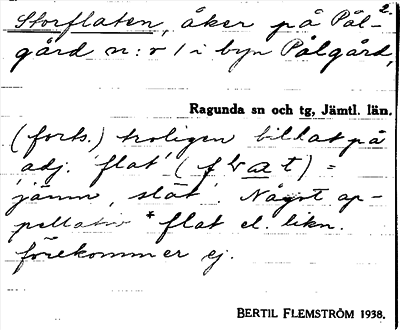 2.
Storflaten, åker på Pål-
gård n:o 1 i byn Pålgård,
Ragunda sn och tg, Jämtl. län.
(forts.) troligen bildat på
adj. 'flat' (flat) =
'jämn, slät'. Något ap-
pellativ *flat el. likn.
förekommer ej.
BERTIL FLEMSTRÖM 1938.